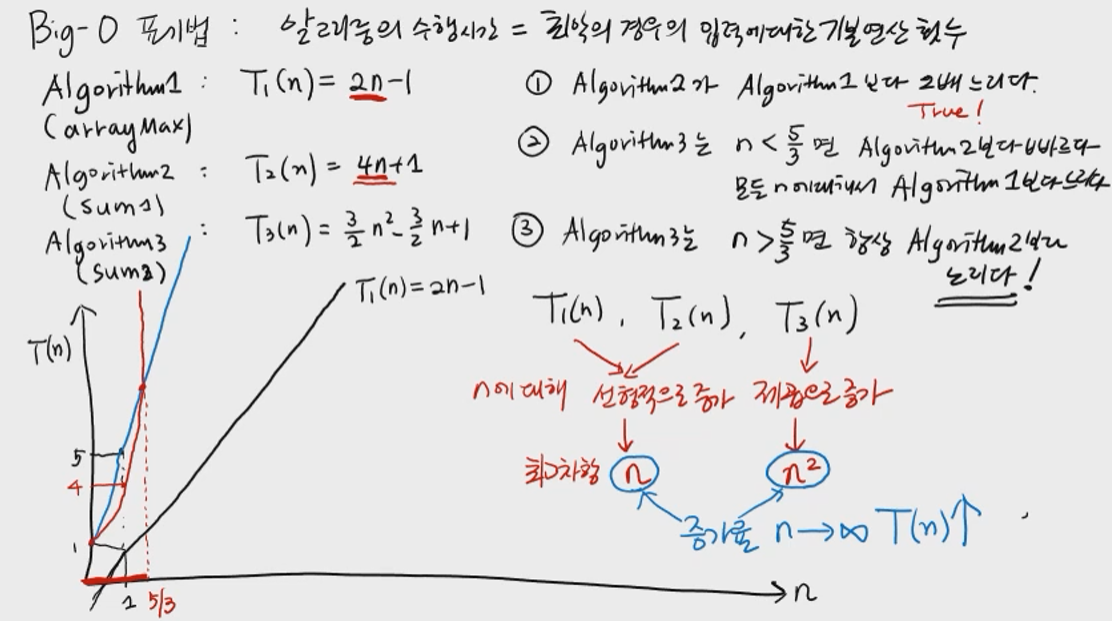 Big-O 표기법 : 알고리즘의 수행시간 = 최악의 경우의 입력에 대한 기본연산 횟수
Algorithm1 : T₁(n) = 2n-1
(arrayMax)
Algorithm2 : T₂(n) = 4n+1
(sum1)
Algorithm3 : T₃(n) = 3/2 n² - 3/2 n + 1
(sum2)
① Algorithm2가 Algorithm1보다 2배 느리다.
True!
② Algorithm3는 n < 5/3 면 Algorithm2보다 빠르다
모든 n에 대해서 Algorithm1보다 느리다
③ Algorithm3는 n > 5/3 면 항상 Algorithm2보다
느리다!
T₁(n) = 2n-1
T₁(n), T₂(n), T₃(n)
n에 대해 선형적으로 증가 제곱으로 증가
최고차항 n n²
증가율 n → ∞ T(n)↑
T(n)
5
4
1
1 5/3
n